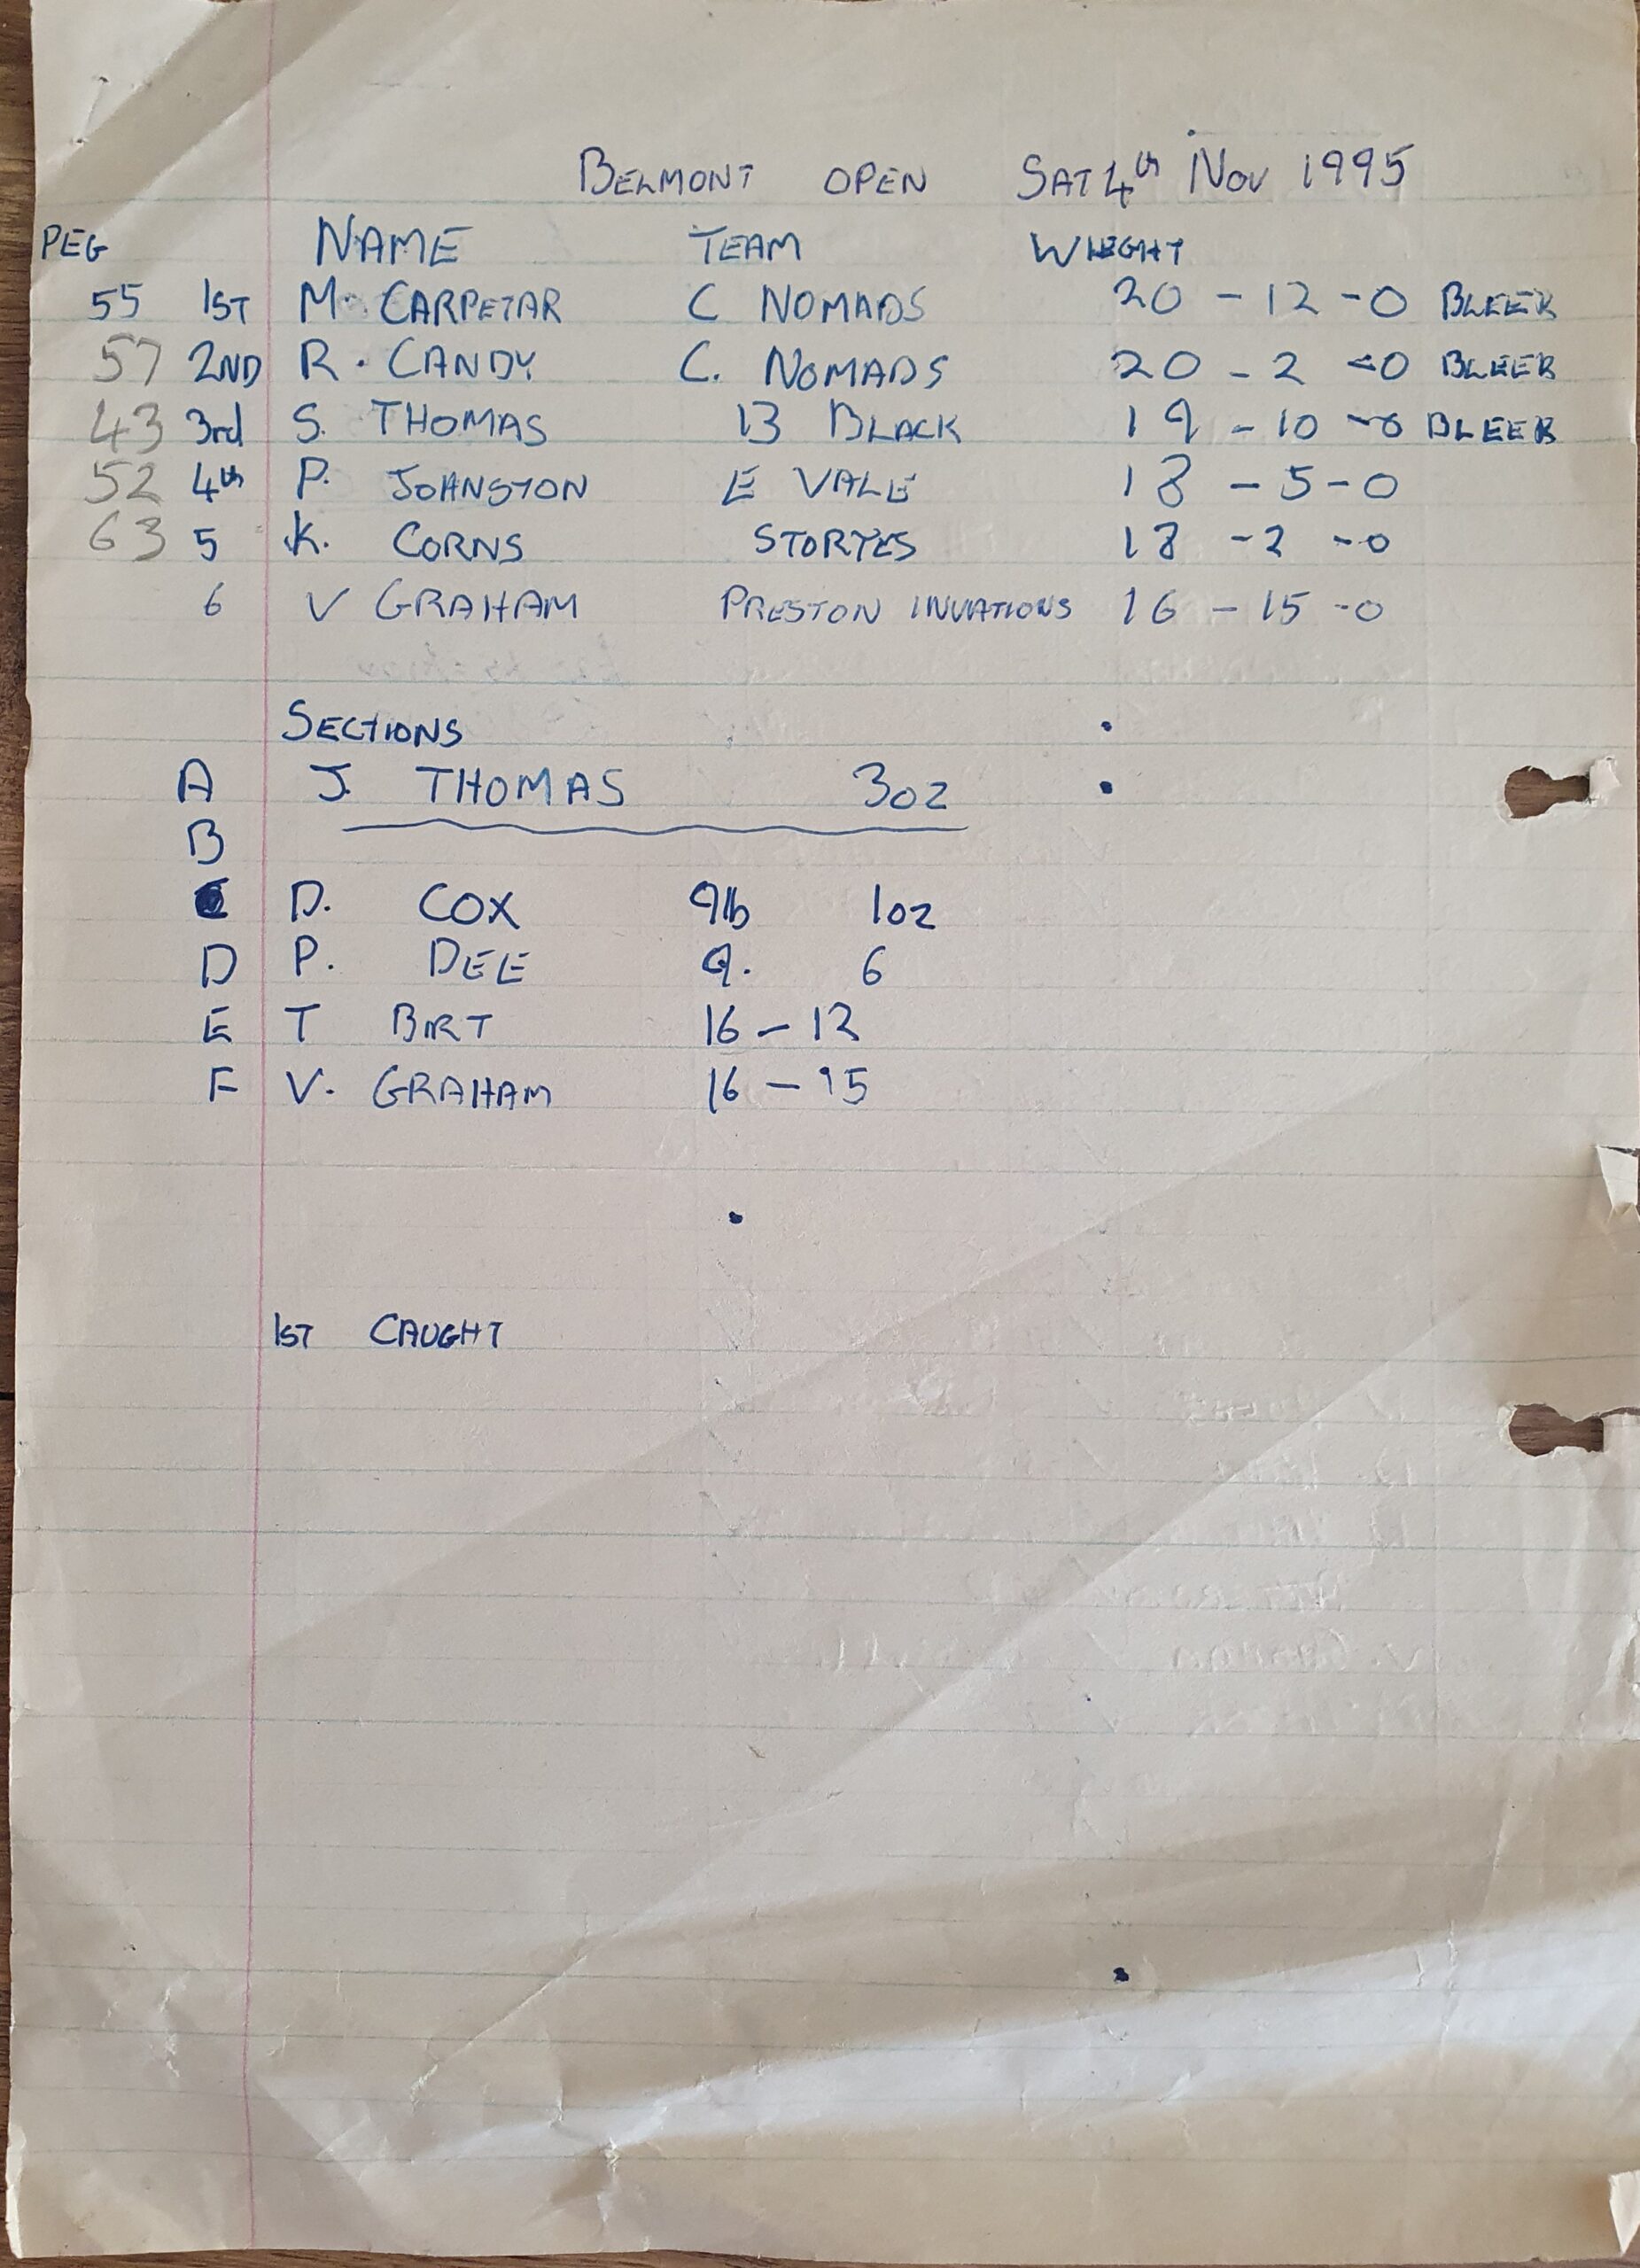 BELMONT OPEN SAT 4th NOV 1995
PEG NAME TEAM WIEGHT
55 1ST M. CARPETAR C NOMADS 20 - 12 - 0 BLEEK
57 2ND R. CANDY C. NOMADS 20 - 2 - 0 BLEEK
43 3rd S. THOMAS 13 BLACK 19 - 10 - 0 BLEEK
52 4th P. JOHNSTON E VALE 18 - 5 - 0
63 5 K. CORNS 18 - 2 - 0
6 V GRAHAM PRESTON INVATIONS 16 - 15 - 0
SECTIONS
A J. THOMAS 3oz
B
C D. COX 9lb 1oz
D P. DEE 9. 6
E T BIRT 16 - 12
F V. GRAHAM 16 - 15
1ST CAUGHT